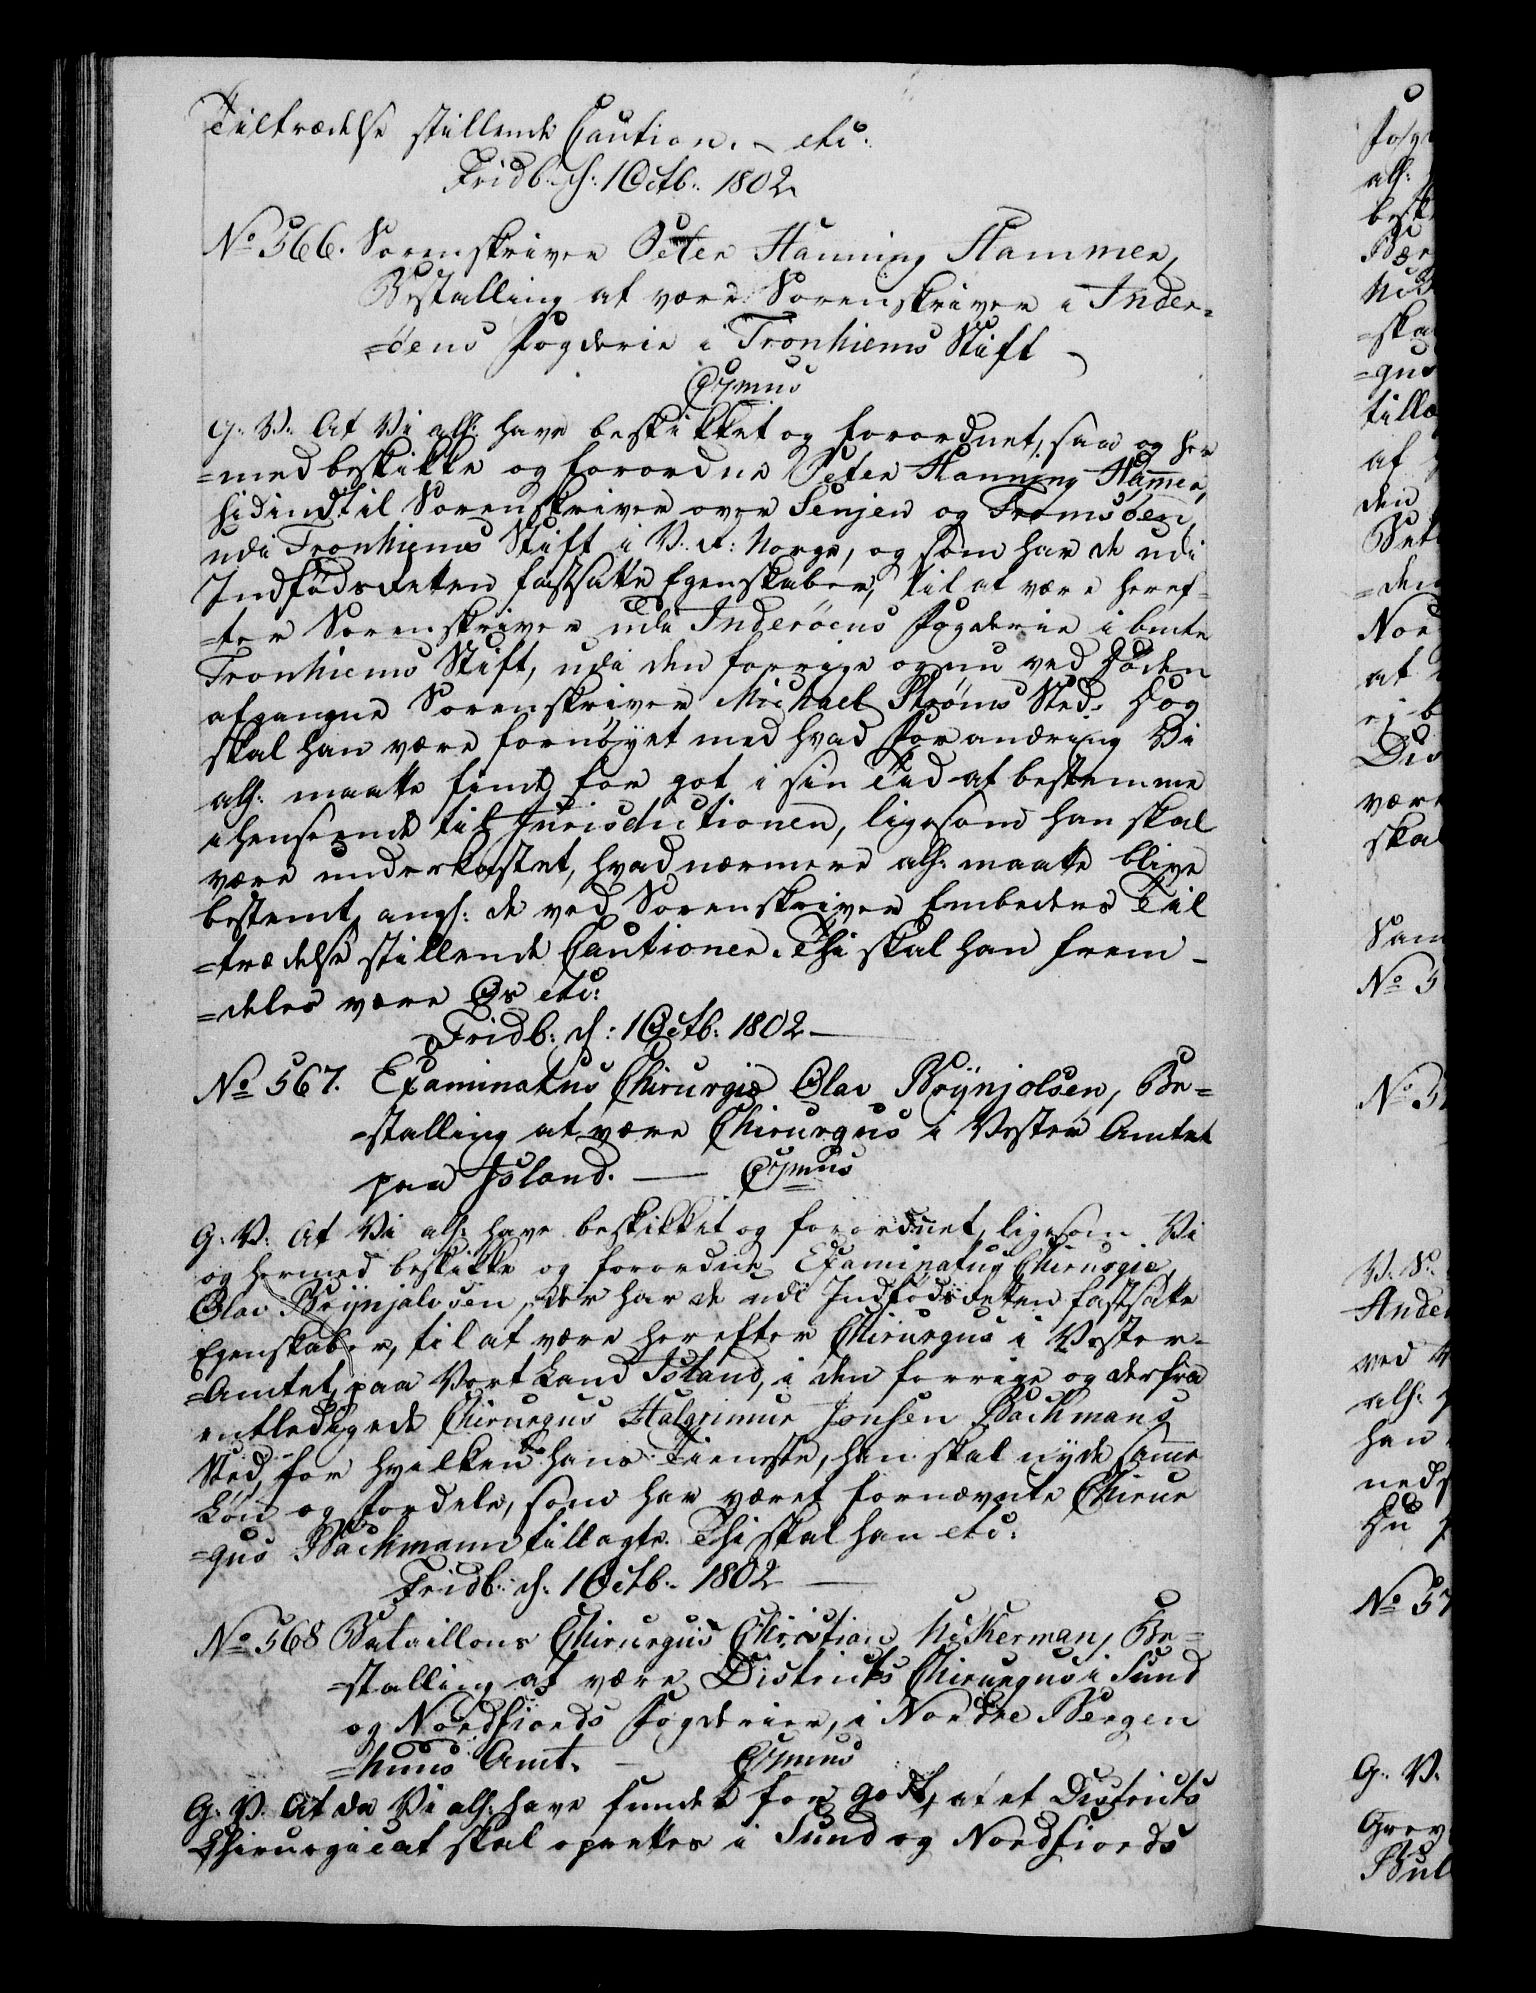 Tiltrædelse stillende Caution. – etc:
Fridb: d: 1 Octb: 1802
No 566. Sorenskriver Peter Hanning Hammer,
Bestalling at være Sorenskriver i Inder-
=öens Fogderie i Tronhiems Stift
G: V: At Vi all: have beskikket og forordnet, saa og her
=med beskikke og forordne Peter Hanning Ham̄er,
hidindtil Sorenskriver over Senjen og Tromsöen,
udi Tronhiems Stift i V: R: Norge, og som har de udi
Indfödsretten fastsatte Egenskaber, til at være heref-
=ter Sorenskriver udi Inderöens Fogderie i bmte
Tronhiems Stift, udi den forrige og nu ved Döden
afgangne Sorenskriver Michael Strøms Sted. Dog
skal han være fornöyet med hvad Forandring Vi
all: maatte finde for got i sin Tid at bestemme
i henseende til Jurisdictionen, ligesom han skal
være underkastet, hvad nærmere all: maatte blive
bestemt, angl: de ved Sorenskriver Embeders Til
=trædelse stillende Cautioner. Thi skal han frem-
=deles være Os etc:
Fridb: d: 1 Octb: 1802 –
No 567. Examinatus Chirurgiæ Olav Brÿnjolsen, Be=
=stalling at være Chirurgus i Vester Amtet
paa Island. –
G: V: At Vi all: have beskikket og forordnet, ligesom Vi
og hermed beskikke og forordne Examinatus Chirurgie,
Olav Brÿnjolvsen, der har de udi Indfödsretten fastsatte
Egenskaber, til at være herefter Chirurgus i Vester-
=Amtet, paa Vort Land Island, i den forrige og derfra
entledigede Chirurgus Halgrimur Jonsen Bachmans
Sted, for hvilken hans Tieneste, han skal nyde sam̄e
Lön og Fordele, som har været fornævnte Chirur
=gus Bachmann tillagte. Thi skal han etc:
Fridb: d: 1 Octb: 1802 –
No 568 Bataillons Chirurgus Christian Neckerman, Be=
=stalling at være Districts Chirurgus i Sund
og Nordfiords Fogderier, i Nordre Bergen
=huus Amt. –
G: V: At da Vi all: have fundet for godt, at et Districts
Chirurgicat skal oprettes i Sund og Nordfiords